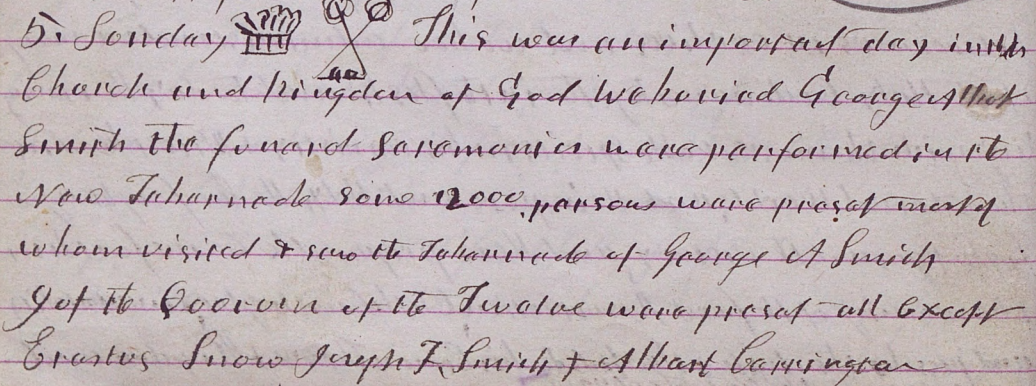 5. Sunday This was an important day in the
Church and Kingdom of God We buried George Albert
Smith the funeral Ceremonies were performed in the
New Tabernacle some 12000 persons were present most of
whom visited & saw the Tabernacle of George A Smith
9 of the Quorum of the Twelve were present all except
Erastus Snow Joseph F. Smith & Albert Carrington